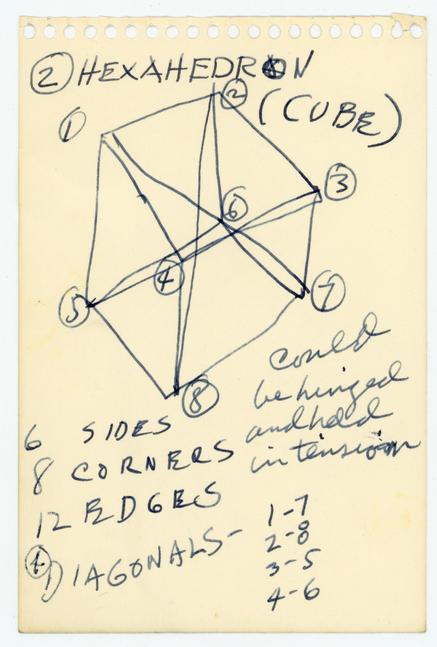 ② HEXAHEDRON
(CUBE)
1
②
③
⑥
④
⑤
⑦
⑧
could
be hinged
and held
in tension
6 SIDES
8 CORNERS
12 EDGES
④ DIAGONALS-
1-7
2-8
3-5
4-6